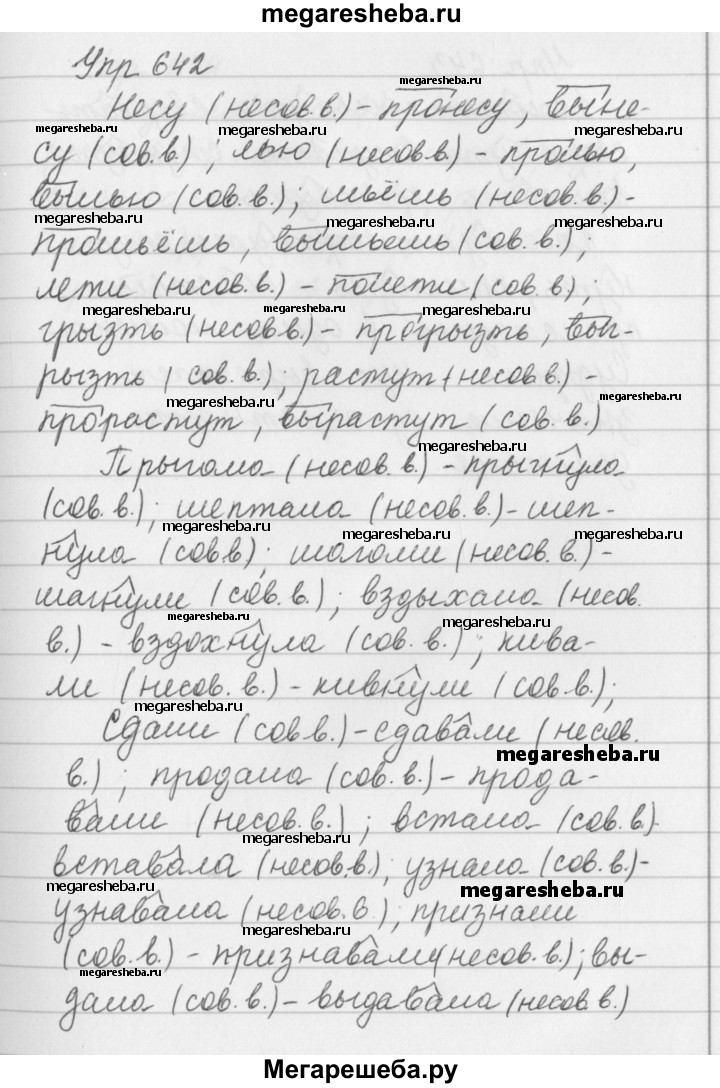 megaresheba.ru
Упр 642
megaresheba.ru
Несу (несов.в.) - пронесу, выне-
megaresheba.ru megaresheba.ru megaresheba.ru
су (сов.в.); лью (несов.в) - пролью,
вылью (сов.в.); шьёшь (несов.в.) -
megaresheba.ru megaresheba.ru
прошьёшь, вышьешь (сов.в.);
лети (несов.в.) - полети (сов.в);
megaresheba.ru megaresheba.ru megaresheba.ru
грызть (несов.в.) - прогрызть, выг-
рызть (сов.в.); растут (несов в.) -
megaresheba.ru
прорастут, вырастут (сов.в.)
megaresheba.ru
Прыгала (несов.в.) - прыгнула
(сов.в.); шептала (несов.в.) - шеп-
megaresheba.ru megaresheba.ru
нула (сов.в); шагали (несов.в.) -
шагнули (сов.в.); вздыхала (несов.
megaresheba.ru megaresheba.ru
в.) - вздохнула (сов.в.); кива-
ли (несов.в.) - кивнули (сов.в.);
megaresheba.ru
Сдали (сов в.) - сдавали (несов.
megaresheba.ru
в.); продала (сов.в.) - прода-
вали (несов.в.); встала (сов.в.)
megaresheba.ru
вставала (несов.в.); узнала (сов.в.) -
megaresheba.ru megaresheba.ru
узнавала (несов.в.); признали
megaresheba.ru
(сов.в.) - признавали (несов.в.); вы-
megaresheba.ru
дала (сов.в.) - выдавала (несов.в.)
Мегарешеба.ру